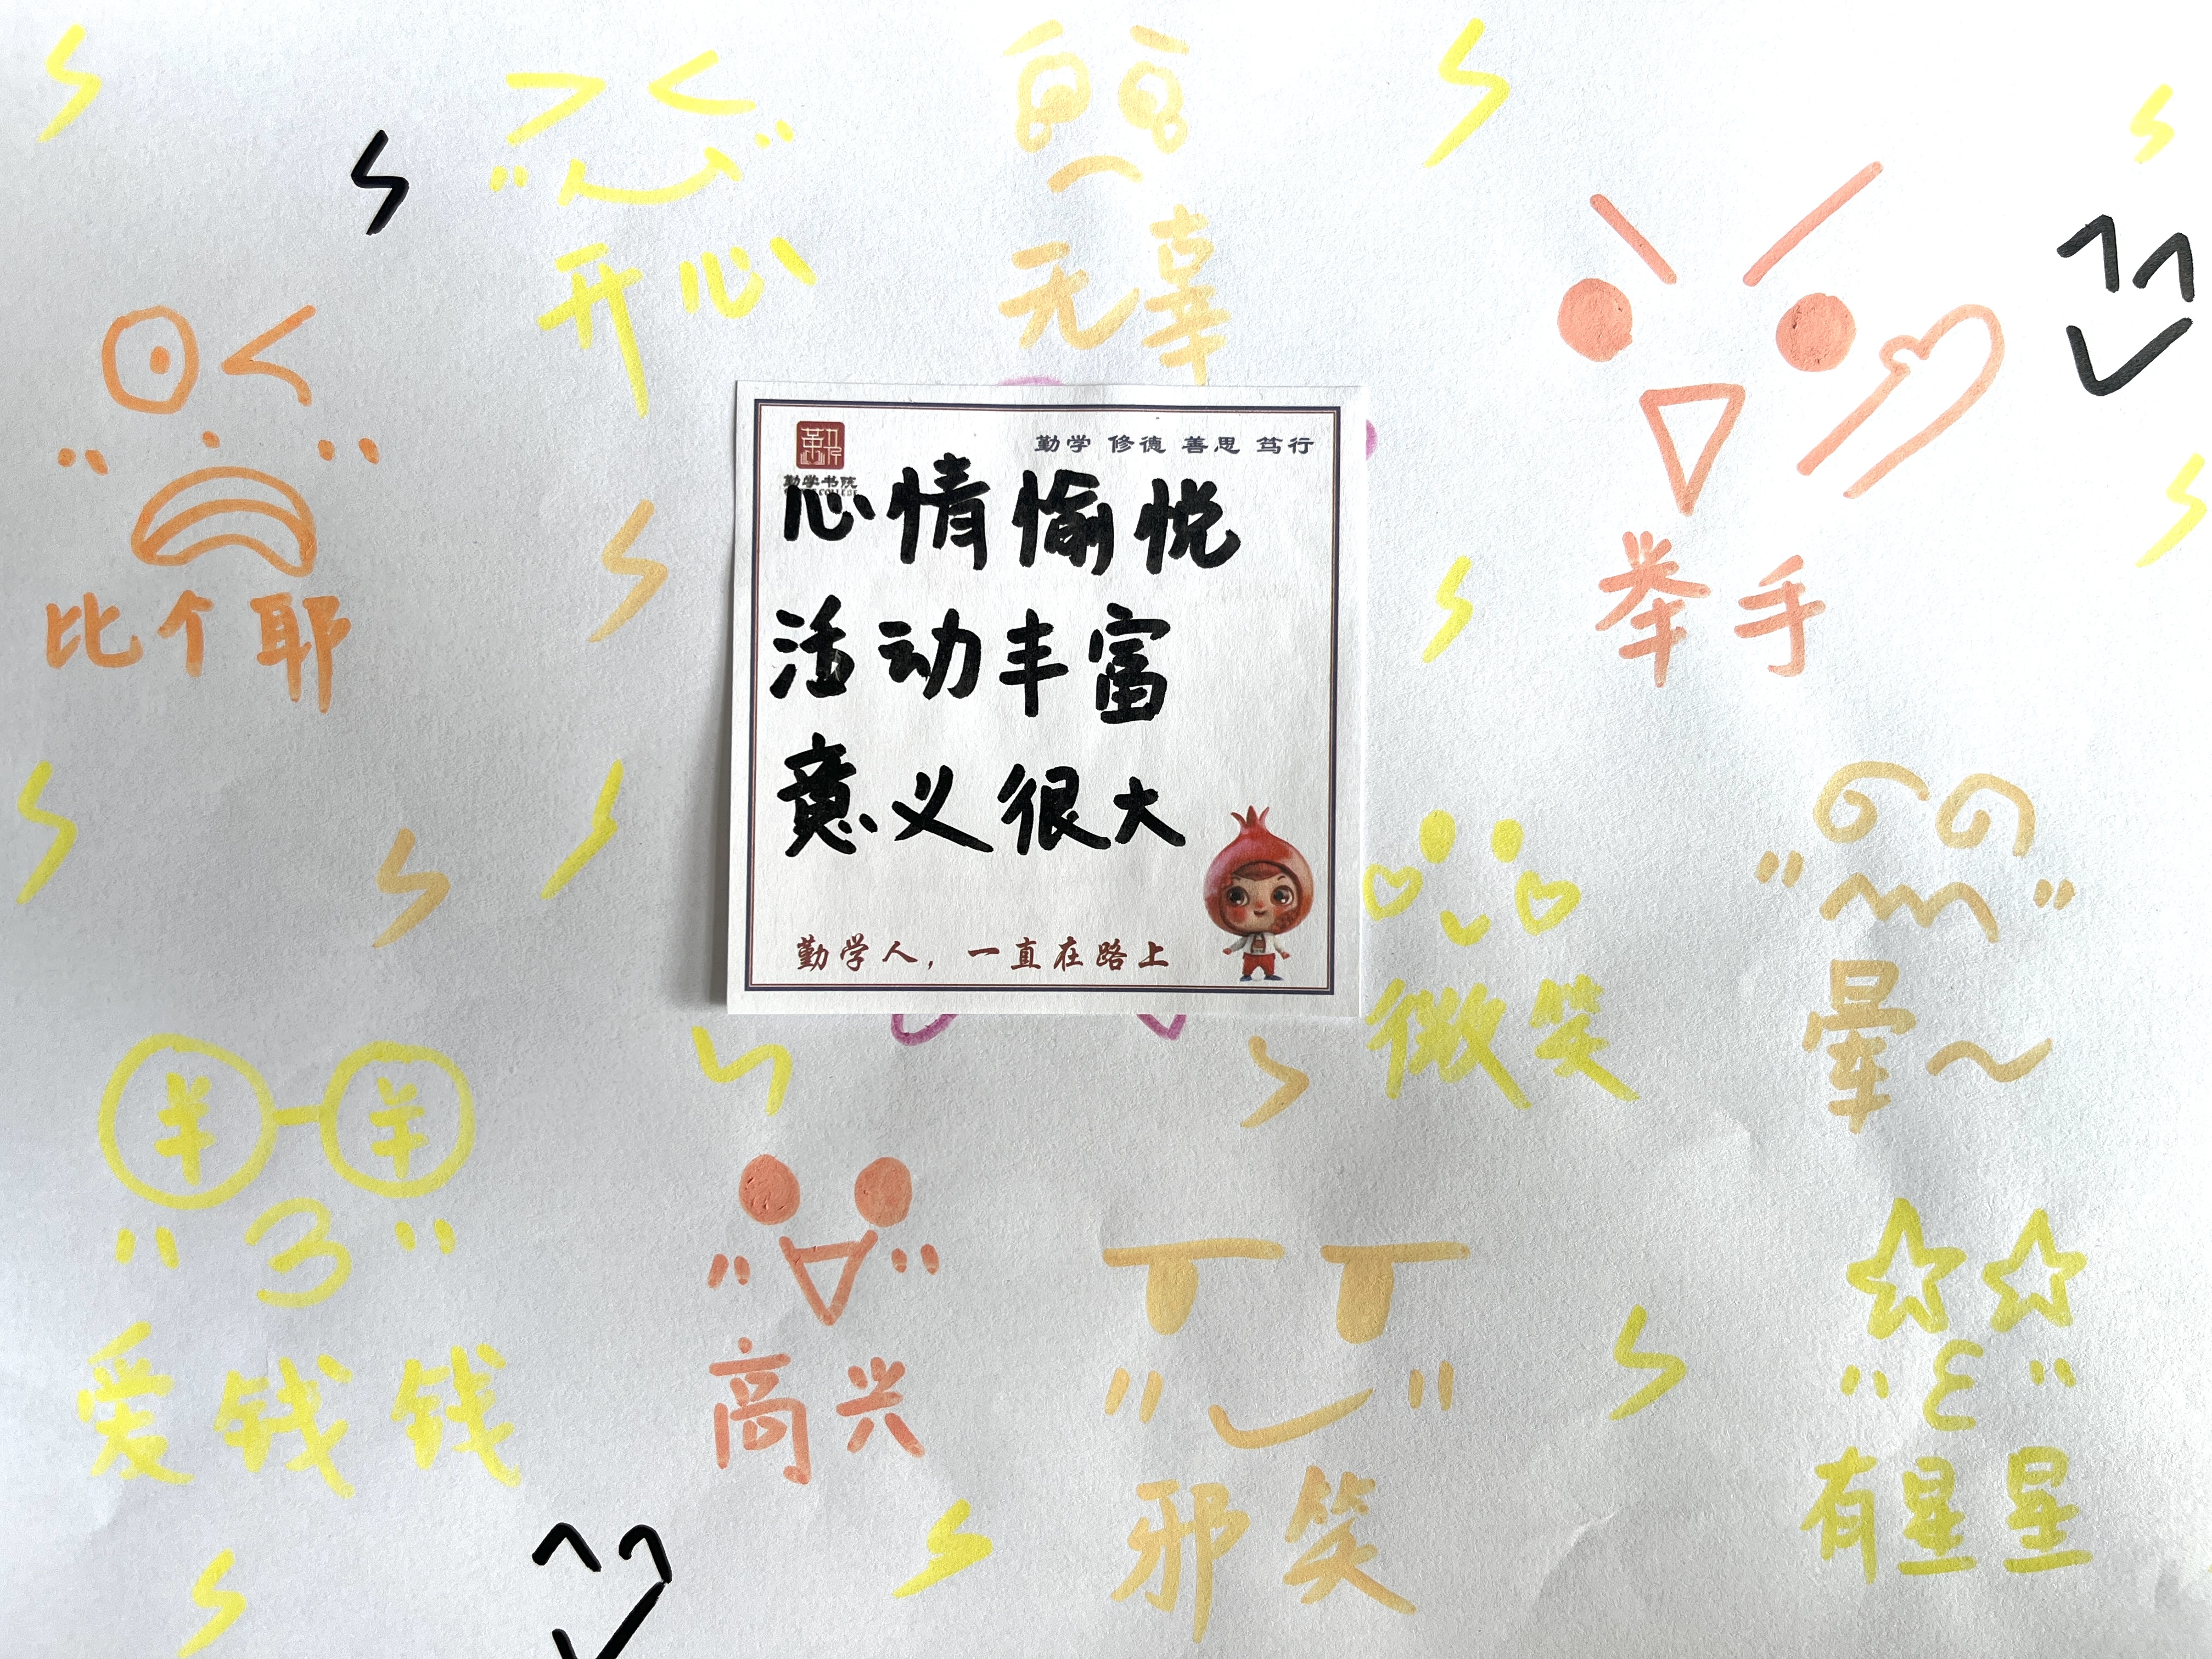 开心
无辜
比个耶
举手
勤学 修德 善思 笃行
勤学书院
心情愉悦
活动丰富
意义很大
勤学人，一直在路上
微笑
晕～
¥ ¥
爱钱钱
高兴
邪笑
有星星